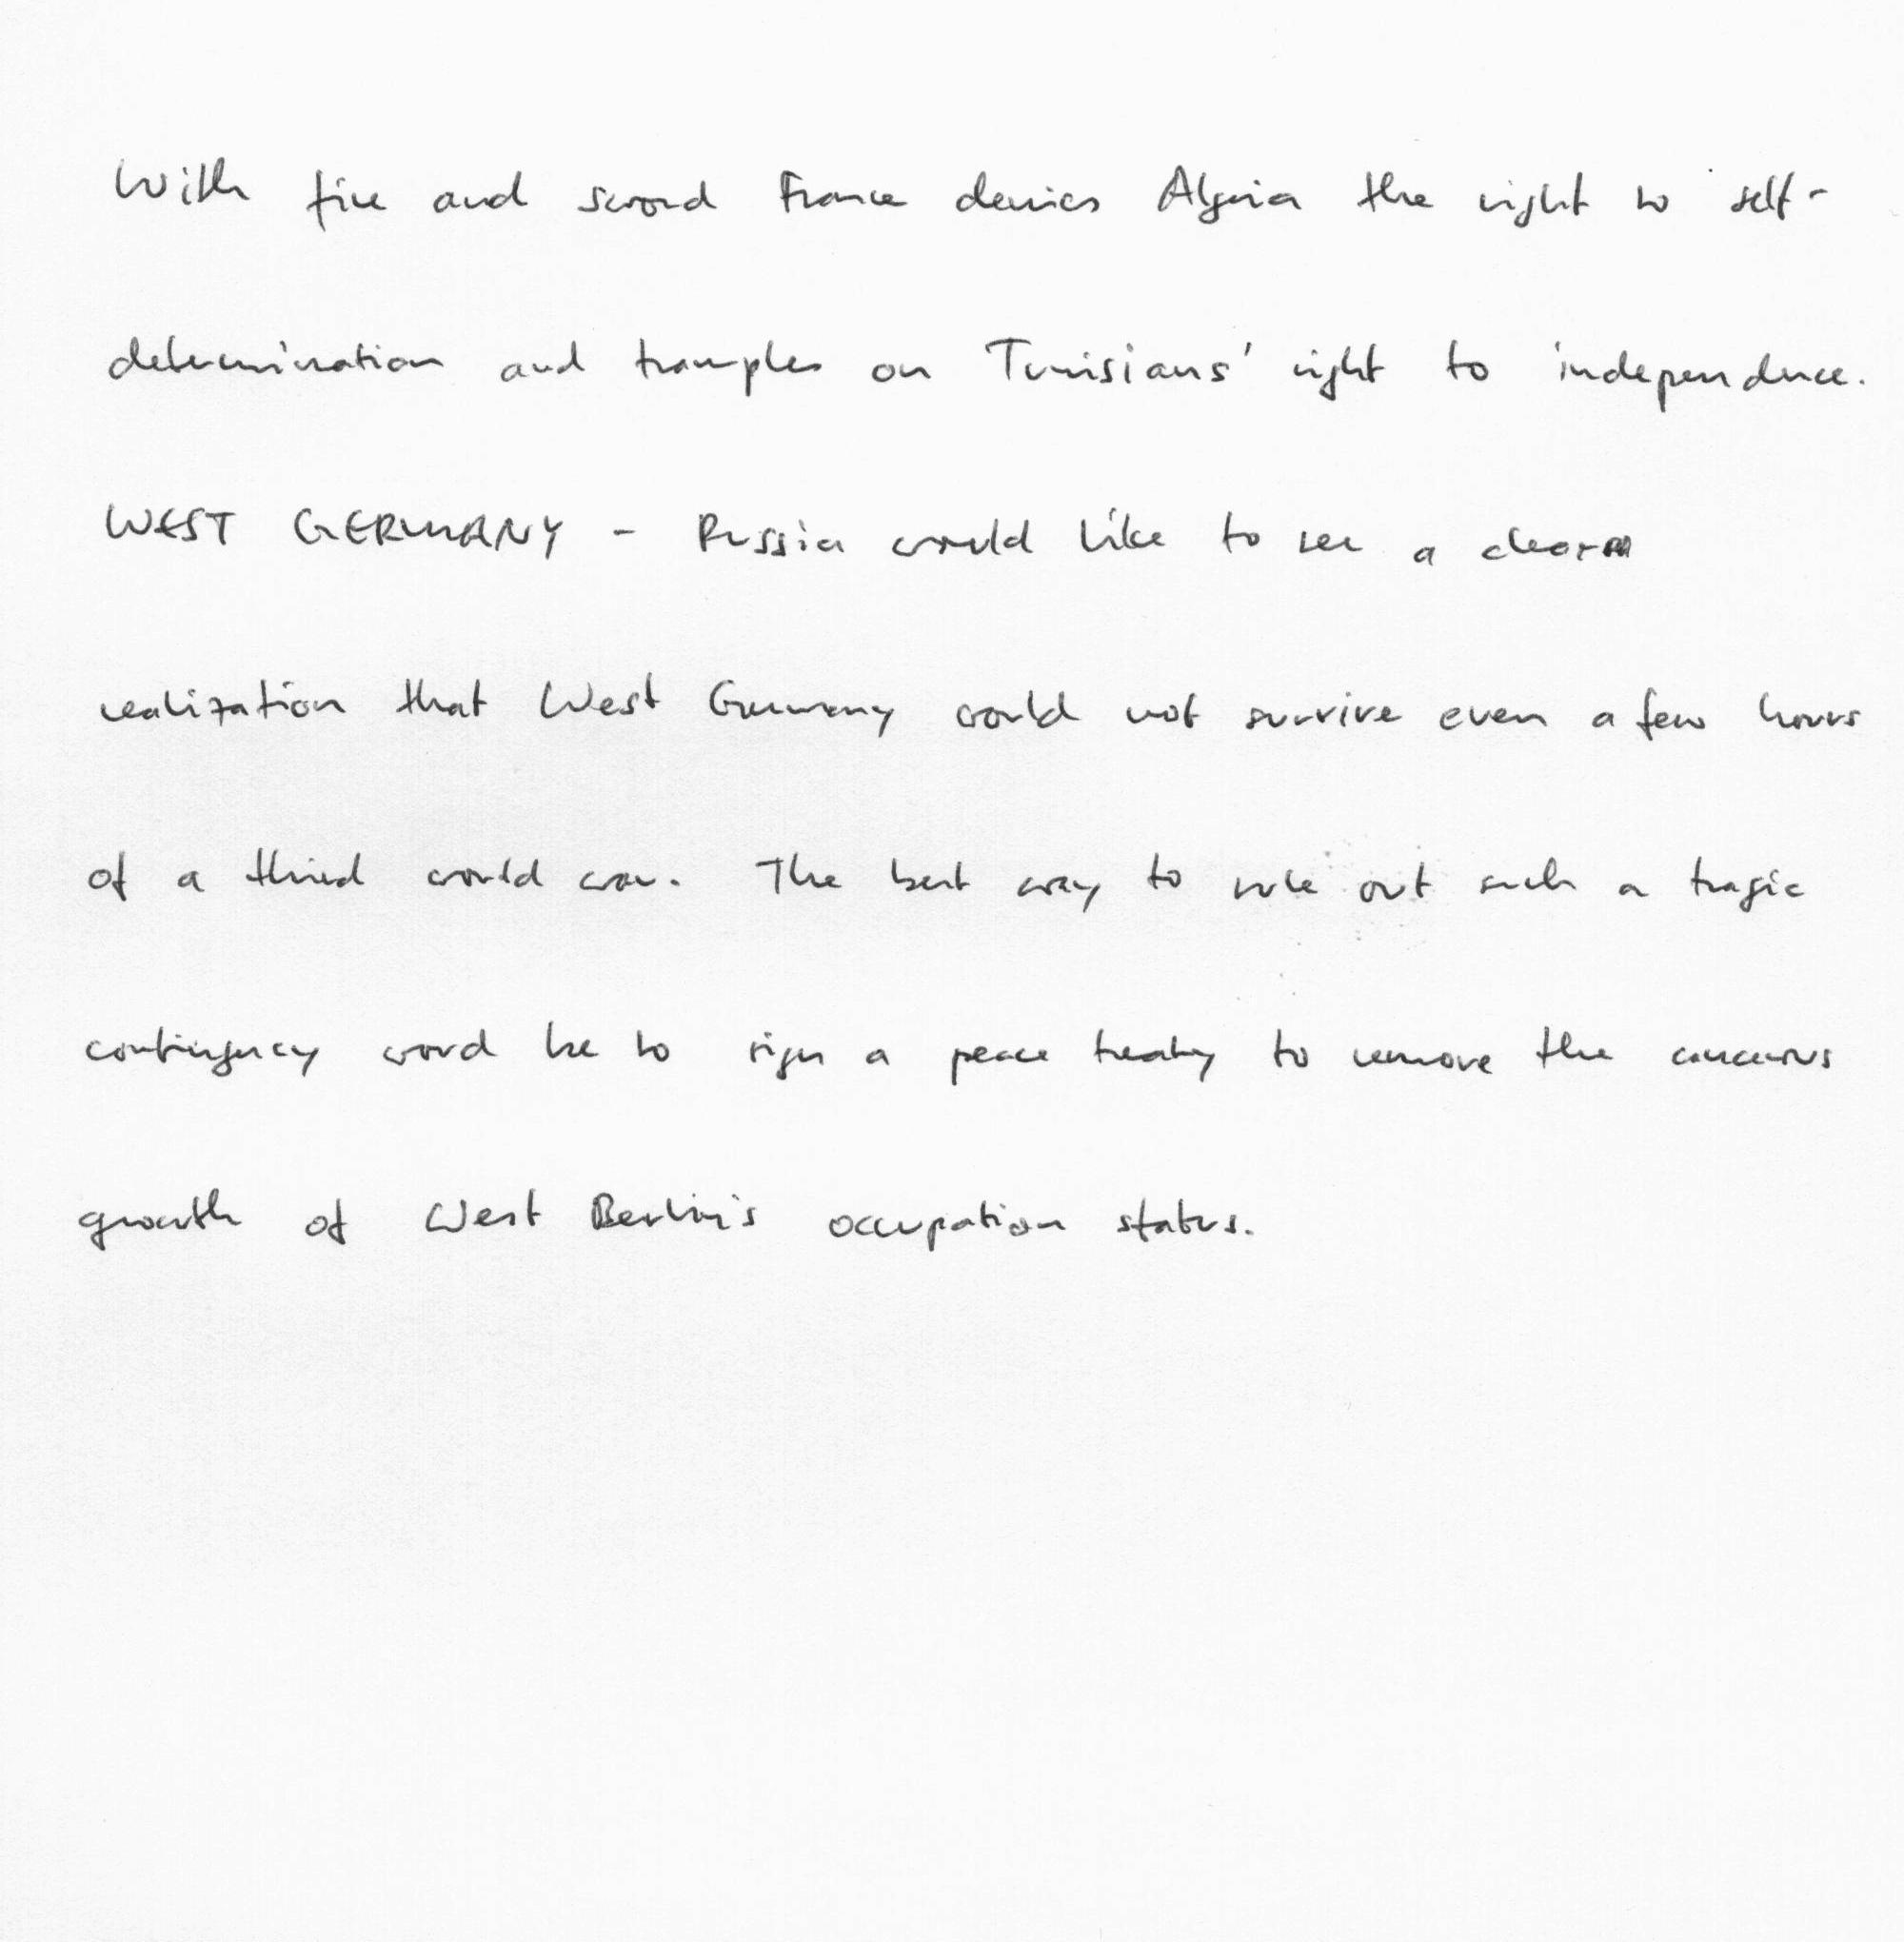 With fire and sword France denies Algeria the right to self-
determination and tramples on Tunisians' right to independence.
WEST GERMANY - Russia would like to see a clear
realization that West Germany would not survive even a few hours
of a third world war. The best way to rule out such a tragic
contingency would be to sign a peace treaty to remove the cancerous
growth of West Berlin's occupation status.